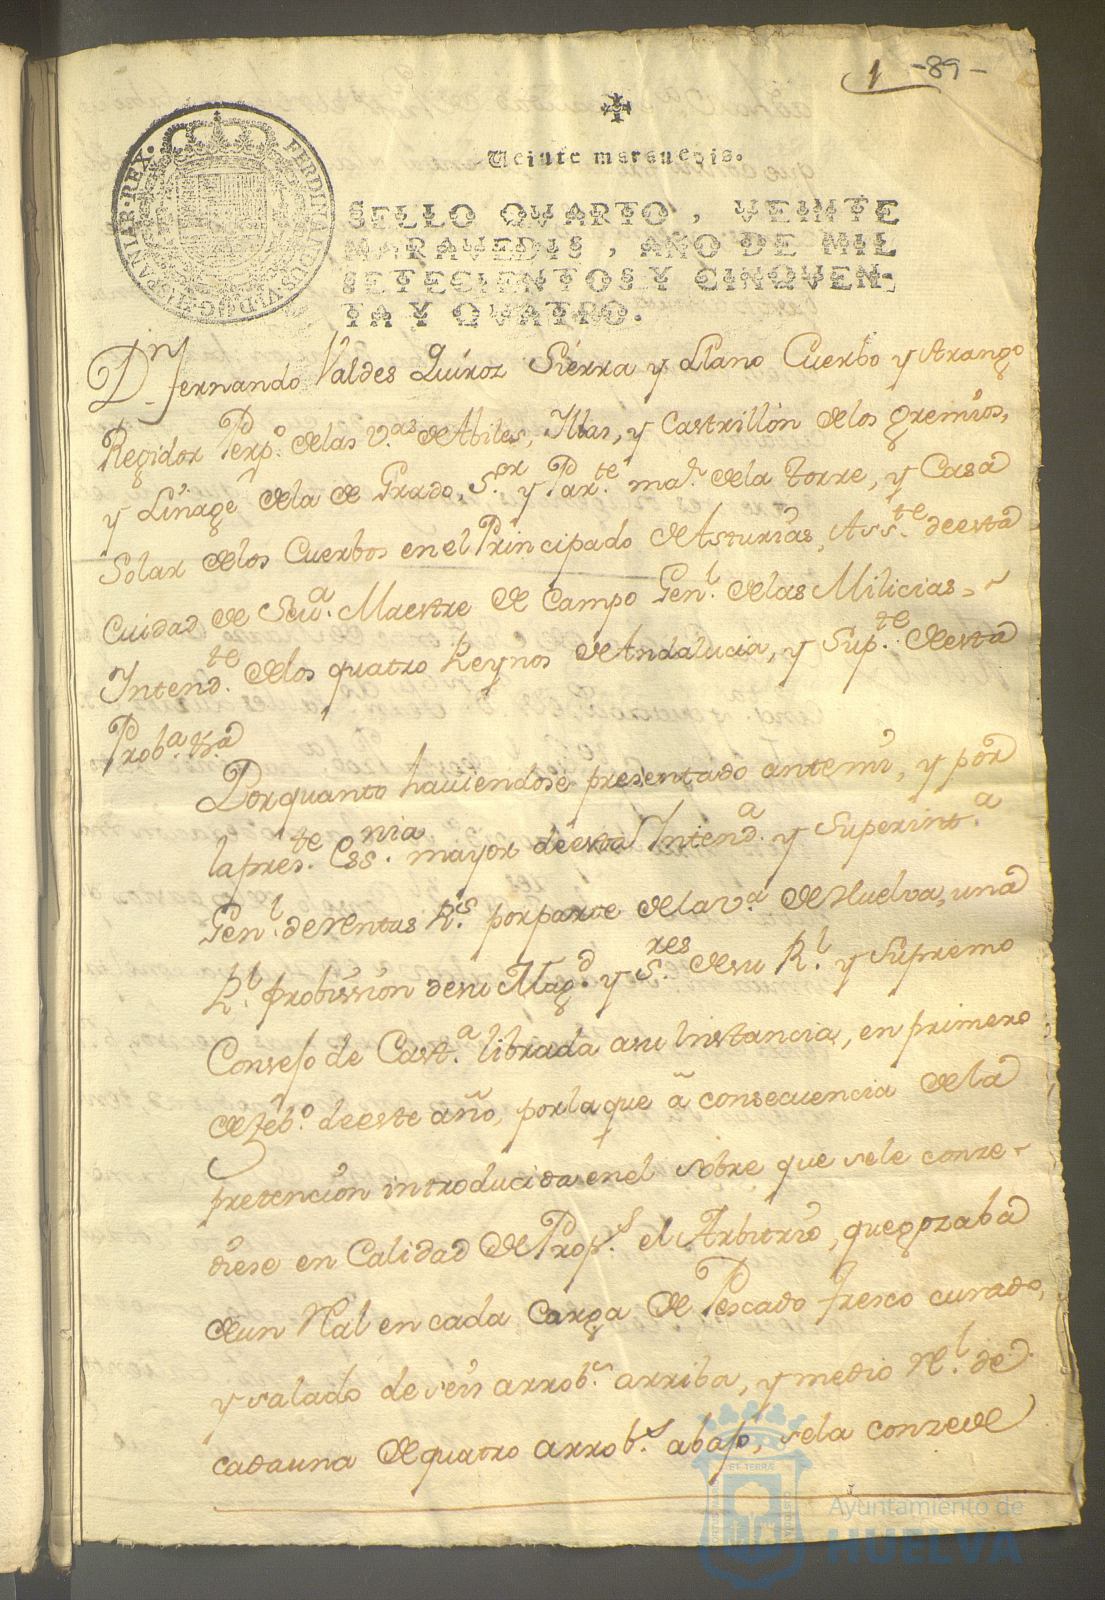 1 -89-
Veinte maravedis.
SELLO QVARTO, VEINTE
MARAVEDIS, AÑO DE MIL
SETECIENTOS Y CINQVEN-
TA Y QVATRO.
FERDINANDUS·VI·D·G·HISPANIAR·REX·
Dn. Fernando Valdes Quiroz Sierra y Llano Cuerbo y Arango
Regidor Perp.o de las V.as de Abiles, Illas, y Castrillón de los gremios,
y Linage de la de Grado, S.or y Par.te ma.r de la Torre, y Casa
Solar de los Cuerbos en el Principado de Asturias, Ass.te de esta
Cuidad de Seu.a Maestre de Campo Gen.l de las Milicias =
Intend.te de los quatro Reynos de Andalucia, y Sup.te de esta
Prob.a &.a
Por quanto haviendose presentado ante mi, y por
la pres.te Ess.nia mayor de esta Intend.a y Superint.a
Gen.l de rentas R.s por parte de la v.a de Huelva, una
R.l probission de su Mag.d y S.res de su R.l y Supremo
Consejo de Cast.a librada a su Instancia, en primero
de feb.o de este año, por la que â consecuencia de la
pretencion introducida en el sobre que se le conze-
diese en Calidad de Prop.s el Arbitrio, que gozaba
de un Real en cada carga de Pescado fresco curado,
y salado de seis arrob.s arriba, y medio R.l de
cada una de quatro arrob.s abajo, se la conzede
Ayuntamiento de
HUELVA